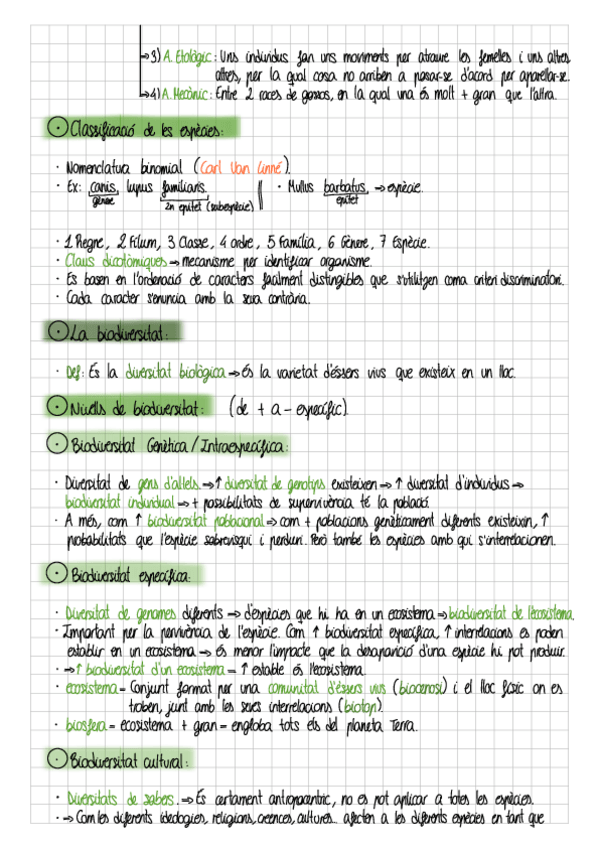 →3) A. Etològic: Uns individus fan uns moviments per atraure les femelles i uns altres
altres, per la qual cosa no arriben a posar-se d'acord per aparellar-se.
→4) A. Mecànic: Entre 2 races de gossos, en la qual una és molt + gran que l'altra.
Classificació de les espècies:
· Nomenclatura binomial (Carl Von Linné).
· Ex: canis, lupus familiaris. · Mullus barbatus, → espècie.
gènere 2n epítet (subespècie) epítet
· 1 Regne, 2 Fílum, 3 Classe, 4 ordre, 5 Família, 6 Gènere, 7 Espècie.
· Claus dicotòmiques → mecanisme per identificar organisme.
· Es basen en l'ordenació de caracters facilment distingibles que s'utilitzen coma criteri discriminatori.
· Cada caracter s'enuncia amb la seva contrària.
La biodiversitat:
· Def: És la diversitat biològica → és la varietat d'éssers vius que existeix en un lloc.
Nivells de biodiversitat: (de + a - específic).
Biodiversitat Genètica / Intraespecífica:
· Diversitat de gens d'al·lels → ↑ diversitat de genotips existeixen → ↑ diversitat d'individus →
biodiversitat individual → + possibilitats de supervivència té la població.
· A més, com ↑ biodiversitat poblacional → com + poblacions genèticament diferents existeixin, ↑
probabilitats que l'espècie sobrevisqui i perduri. Però també les espècies amb qui s'interrelacionen.
Biodiversitat específica:
· Diversitat de genomes diferents → d'espècies que hi ha en un ecosistema → biodiversitat de l'ecosistema.
· Important per la pervivència de l'espècie. Com ↑ biodiversitat específica, ↑ interrelacions es poden
establir en un ecosistema → és menor l'impacte que la desaparició d'una espècie hi pot produir.
· → ↑ biodiversitat d'un ecosistema = ↑ estable és l'ecosistema.
· ecosistema = Conjunt format per una comunitat d'éssers vius (biocenosi) i el lloc físic on es
troben, junt amb les seves interrelacions (biotop).
· biosfera = ecosistema + gran = engloba tots els del planeta Terra.
Biodiversitat cultural:
· Diversitats de sabers. → És certament antropocèntric, no es pot aplicar a totes les espècies.
· → Com les diferents ideologies, religions, creences, cultures... afecten a les diferents espècies en tant que